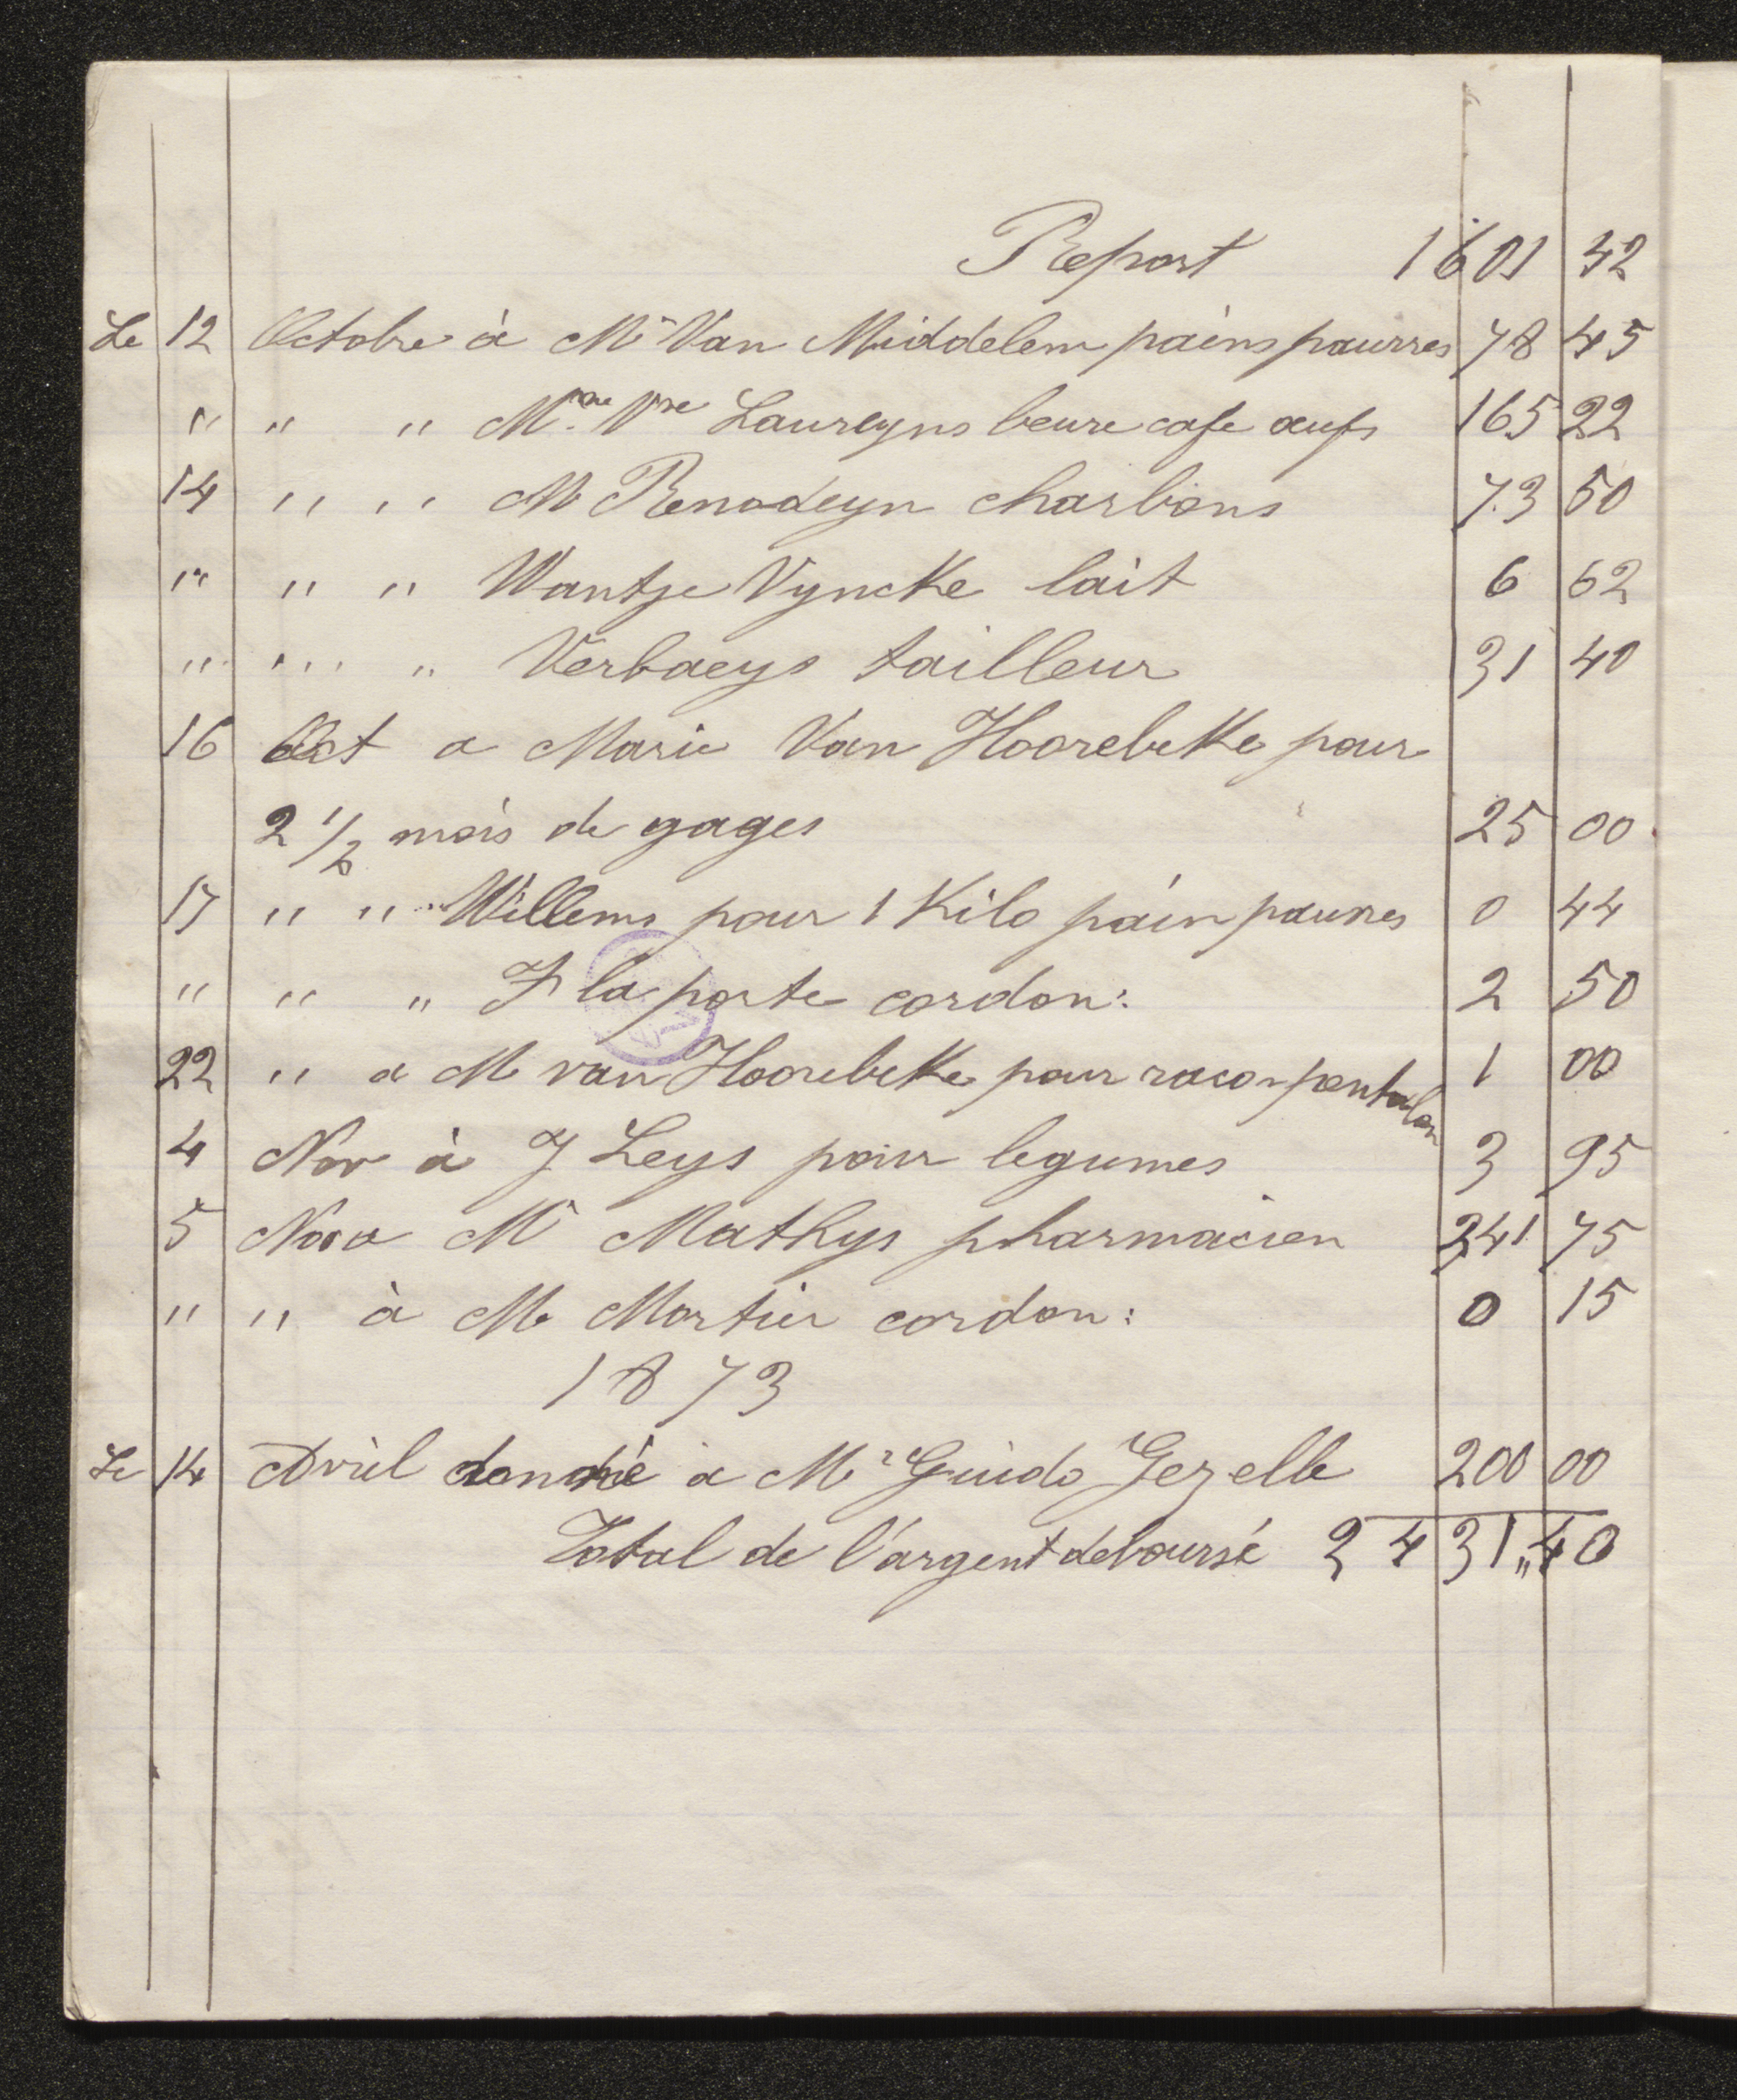 Report 1601 42
Le 12 Octobre à Mr Van Middelem pains pauvres 78 45
" " " Mme Vve Laureyns beure cafe œufs 165 22
14 " " M Renodeyn charbons 73 50
" " " Wantje Vyncke lait 6 62
" " " Verbaeys tailleur 31 40
16 Oct a Marie Van Hoorebekke pour
2 1/2 mois de gages 25 00
17 " " Willems pour 1 Kilo pain pauvres 0 44
" " " F laporte cordon: 2 50
22 " a M van Hoorebekke pour racon pantalon 1 00
4 Nov à J Leys pour legumes 3 95
5 Nov a Mr Mathys pharmacien 241 75
" " à M Mortier cordon: 0 15
1873
Le 14 Avril donné a Mr Guido Gezelle 200 00
Total de l'argent deboursé 2431,,40